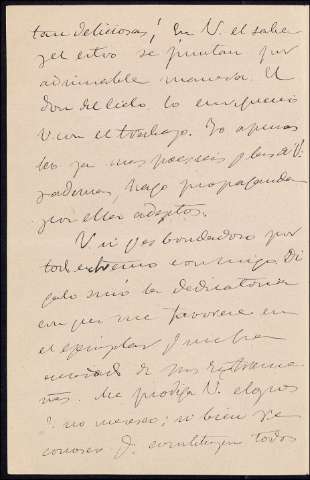 tan deliciosas! En V. el saber
y el estro se juntan por
admirable manera. El
don del cielo lo enriqueció
V. con el trabajo. Yo apenas
leo ya mas poesias que las de V.
y ademas, hago propaganda
y por ellas adeptos.
V. es bondadoso por
todo extremo conmigo. Di
galo sinó la dedicatoria
con que me favorece en
el ejemplar
de sus
Me prodiga V. elogios
q. no merezco; si bien ya
conozco q. constituyen todos